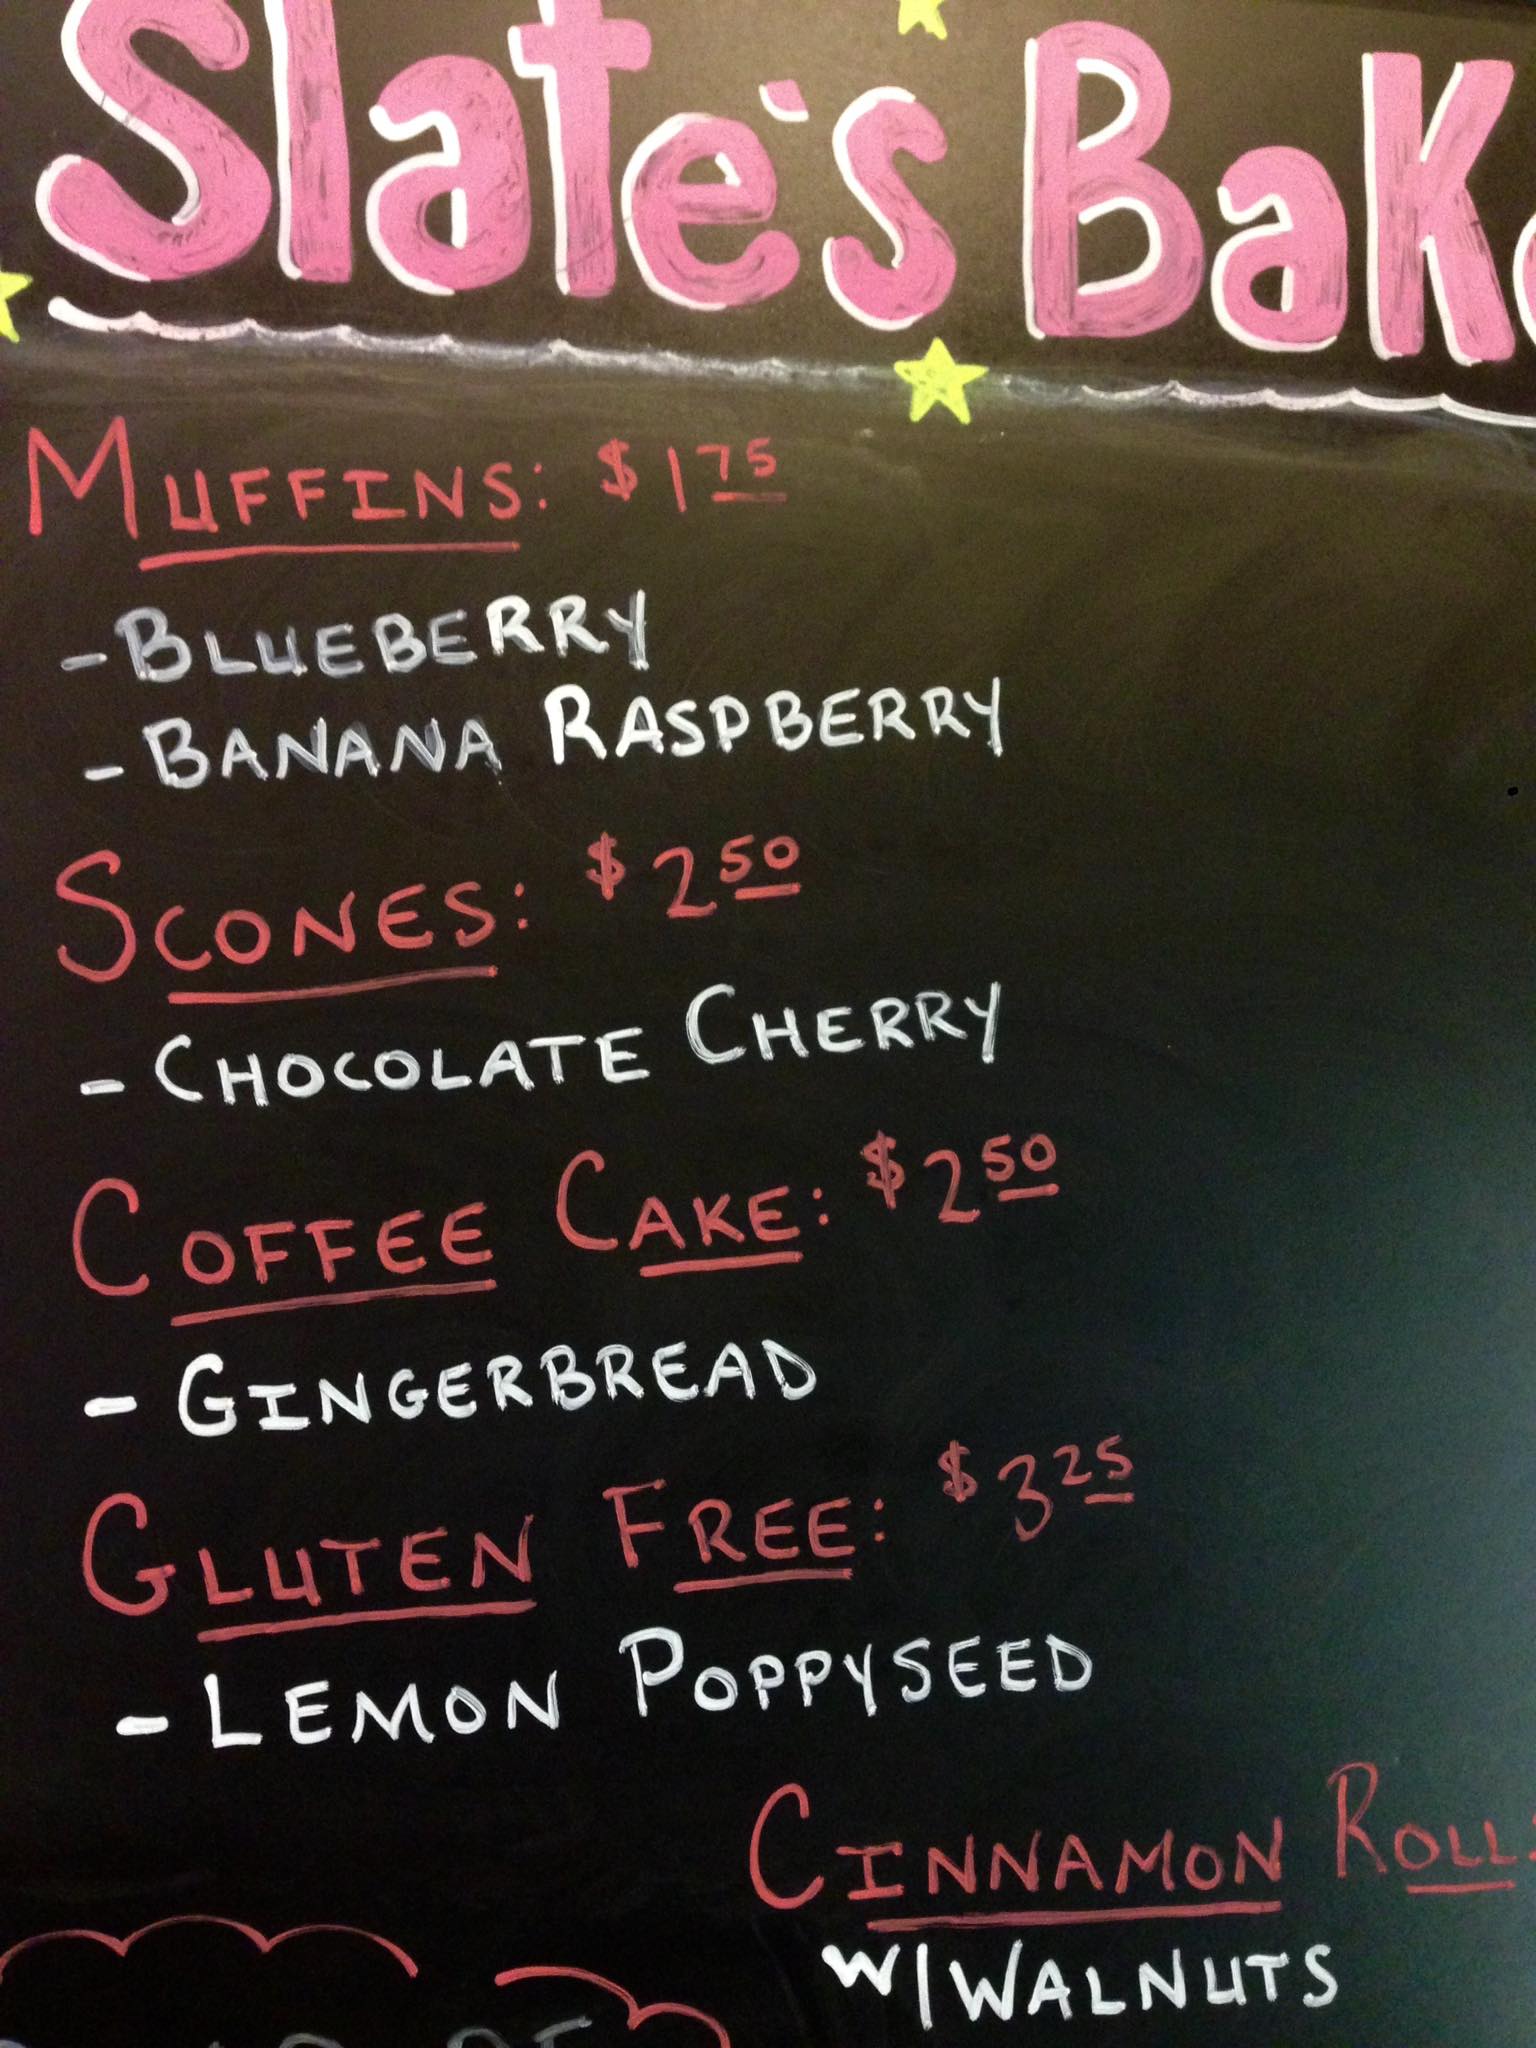 Slate's
MUFFINS: $1.75
- BLUEBERRY
- BANANA RASPBERRY
SCONES: $2.50
- CHOCOLATE CHERRY
COFFEE CAKE: $2.50
- GINGERBREAD
GLUTEN FREE: $3.25
- LEMON POPPYSEED
CINNAMON ROLL:
W/WALNUTS